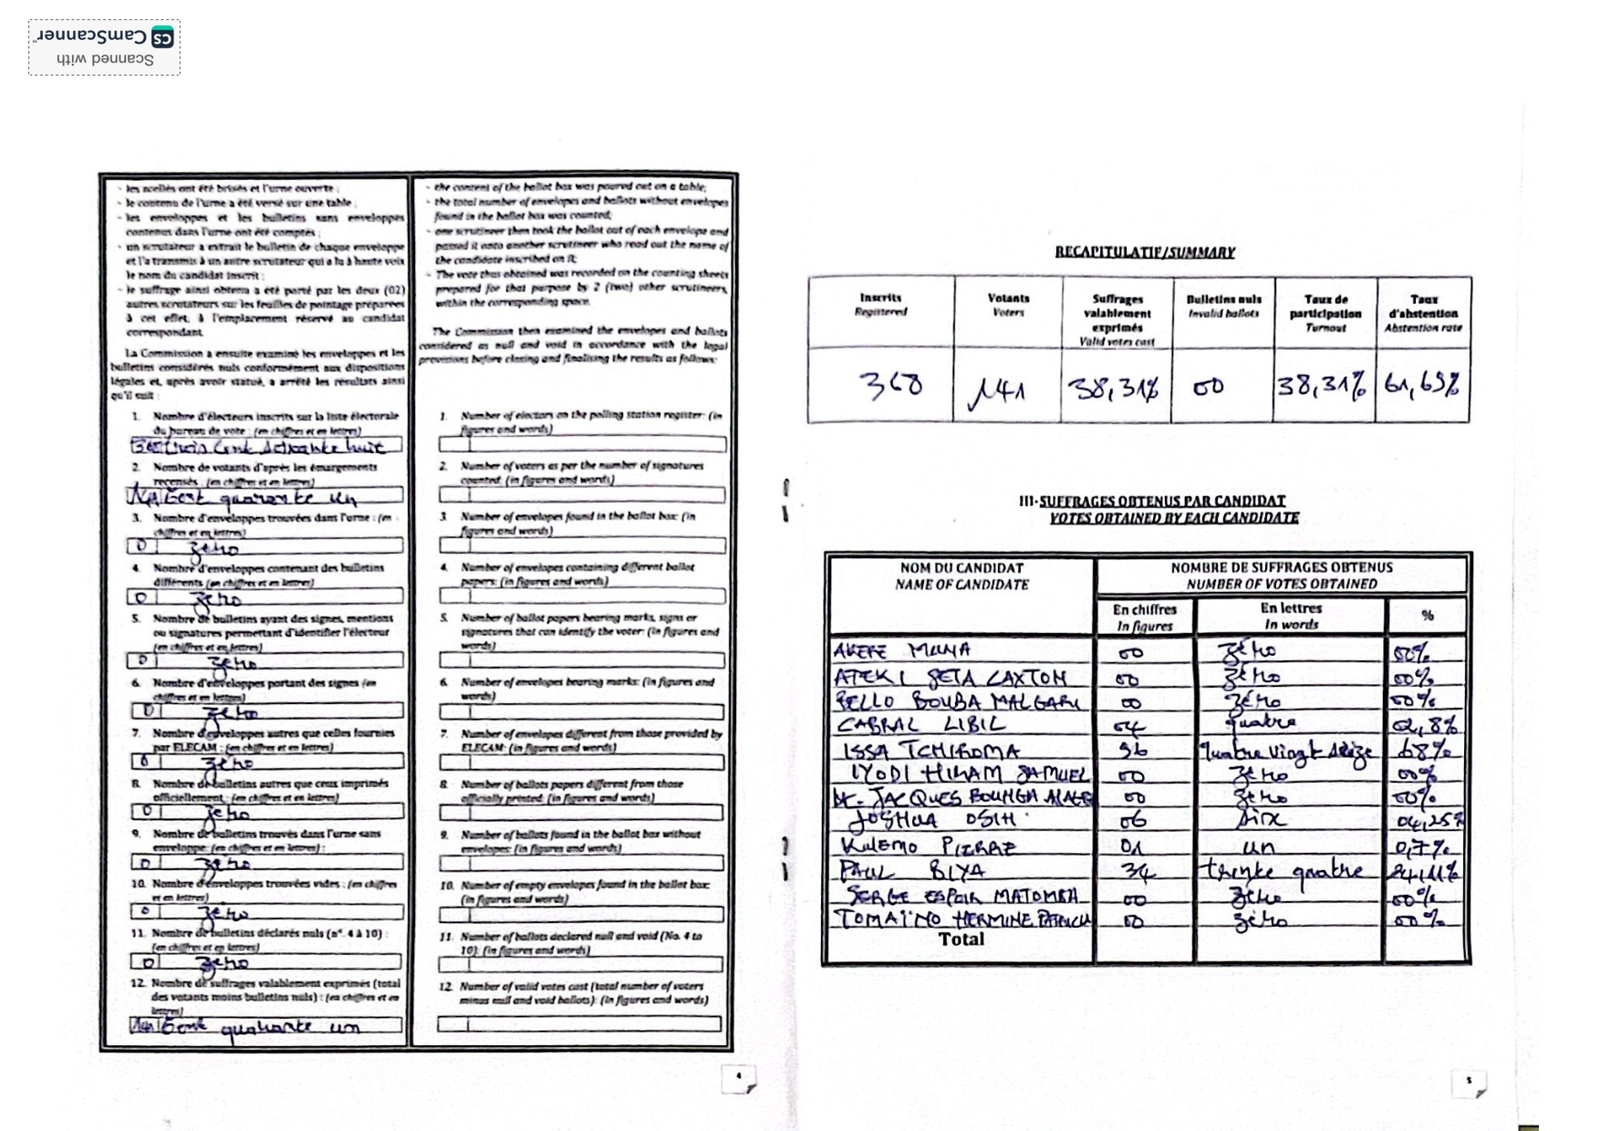 Scanned with
CS CamScanner
- les scellés ont été brisés et l'urne ouverte ;
- le contenu de l'urne a été versé sur une table ;
- les enveloppes et les bulletins sans enveloppes
contenus dans l'urne ont été comptés ;
- un scrutateur a extrait le bulletin de chaque enveloppe
et l'a transmis à un autre scrutateur qui a lu à haute voix
le nom du candidat inscrit ;
- le suffrage ainsi obtenu a été porté par les deux (02)
autres scrutateurs sur les feuilles de pointage préparées
à cet effet, à l'emplacement réservé au candidat
correspondant.
La Commission a ensuite examiné les enveloppes et les
bulletins considérés nuls conformément aux dispositions
légales et, après avoir statué, a arrêté les résultats ainsi
qu'il suit :
1. Nombre d'électeurs inscrits sur la liste électorale
du bureau de vote : (en chiffres et en lettres)
368 trois cent soixante huit
2. Nombre de votants d'après les émargements
recensés (en chiffres et en lettres)
141 cent quarante un
3. Nombre d'enveloppes trouvées dans l'urne : (en
chiffres et en lettres)
0 zéro
4. Nombre d'enveloppes contenant des bulletins
différents (en chiffres et en lettres)
0 zéro
5. Nombre de bulletins ayant des signes, mentions
ou signatures permettant d'identifier l'électeur
(en chiffres et en lettres)
0 zéro
6. Nombre d'enveloppes portant des signes (en
chiffres et en lettres)
0 zéro
7. Nombre d'enveloppes autres que celles fournies
par ELECAM : (en chiffres et en lettres)
0 zéro
8. Nombre de bulletins autres que ceux imprimés
officiellement : (en chiffres et en lettres)
0 zéro
9. Nombre de bulletins trouvés dans l'urne sans
enveloppe (en chiffres et en lettres) :
0 zéro
10. Nombre d'enveloppes trouvées vides : (en chiffres
et en lettres)
0 zéro
11. Nombre de bulletins déclarés nuls (n°. 4 à 10) :
(en chiffres et en lettres)
0 zéro
12. Nombre de suffrages valablement exprimés (total
des votants moins bulletins nuls) : (en chiffres et en
lettres)
141 cent quarante un
- the content of the ballot box was poured out on a table;
- the total number of envelopes and ballots without envelopes
found in the ballot box was counted;
- one scrutineer then took the ballot out of each envelope and
passed it onto another scrutineer who read out the name of
the candidate inscribed on it;
- The vote thus obtained was recorded on the counting sheets
prepared for that purpose by 2 (two) other scrutineers,
within the corresponding space.
The Commission then examined the envelopes and ballots
considered as null and void in accordance with the legal
provisions before closing and finalising the results as follows:
1. Number of electors on the polling station register: (in
figures and words)
2. Number of voters as per the number of signatures
counted: (in figures and words)
3. Number of envelopes found in the ballot box: (in
figures and words)
4. Number of envelopes containing different ballot
papers: (in figures and words)
5. Number of ballot papers bearing marks, signs or
signatures that can identify the voter: (in figures and
words)
6. Number of envelopes bearing marks: (in figures and
words)
7. Number of envelopes different from those provided by
ELECAM: (in figures and words)
8. Number of ballots papers different from those
officially printed: (in figures and words)
9. Number of ballots found in the ballot box without
envelopes: (in figures and words)
10. Number of empty envelopes found in the ballot box:
(in figures and words)
11. Number of ballots declared null and void (No. 4 to
10): (in figures and words)
12. Number of valid votes cast (total number of voters
minus null and void ballots): (in figures and words)
4
RECAPITULATIF/SUMMARY
Inscrits Registered | Votants Voters | Suffrages valablement exprimés Valid votes cast | Bulletins nuls Invalid ballots | Taux de participation Turnout | Taux d'abstention Abstention rate
368 | 141 | 38,31% | 00 | 38,31% | 61,69%
III-SUFFRAGES OBTENUS PAR CANDIDAT
VOTES OBTAINED BY EACH CANDIDATE
NOM DU CANDIDAT NOMBRE DE SUFFRAGES OBTENUS
NAME OF CANDIDATE NUMBER OF VOTES OBTAINED
En chiffres En lettres %
In figures In words
AKERE MUNA 00 zéro 00%
ATEKI SETA CAXTON 00 zéro 00%
BELLO BOUBA MAIGARI 00 zéro 00%
CABRAL LIBII 04 quatre 02,8%
ISSA TCHIROMA 96 quatre vingt seize 68%
IYODI HIRAM SAMUEL 00 zéro 00%
JACQUES BOUHGA 00 zéro 00%
JOSHUA OSIH 06 six 04,25%
KWEMO PIERRE 01 un 0,7%
PAUL BIYA 34 trente quatre 24,11%
SERGE ESPOIR MATOMBA 00 zéro 00%
TOMAÏNO HERMINE PATRICIA 00 zéro 00%
Total
5